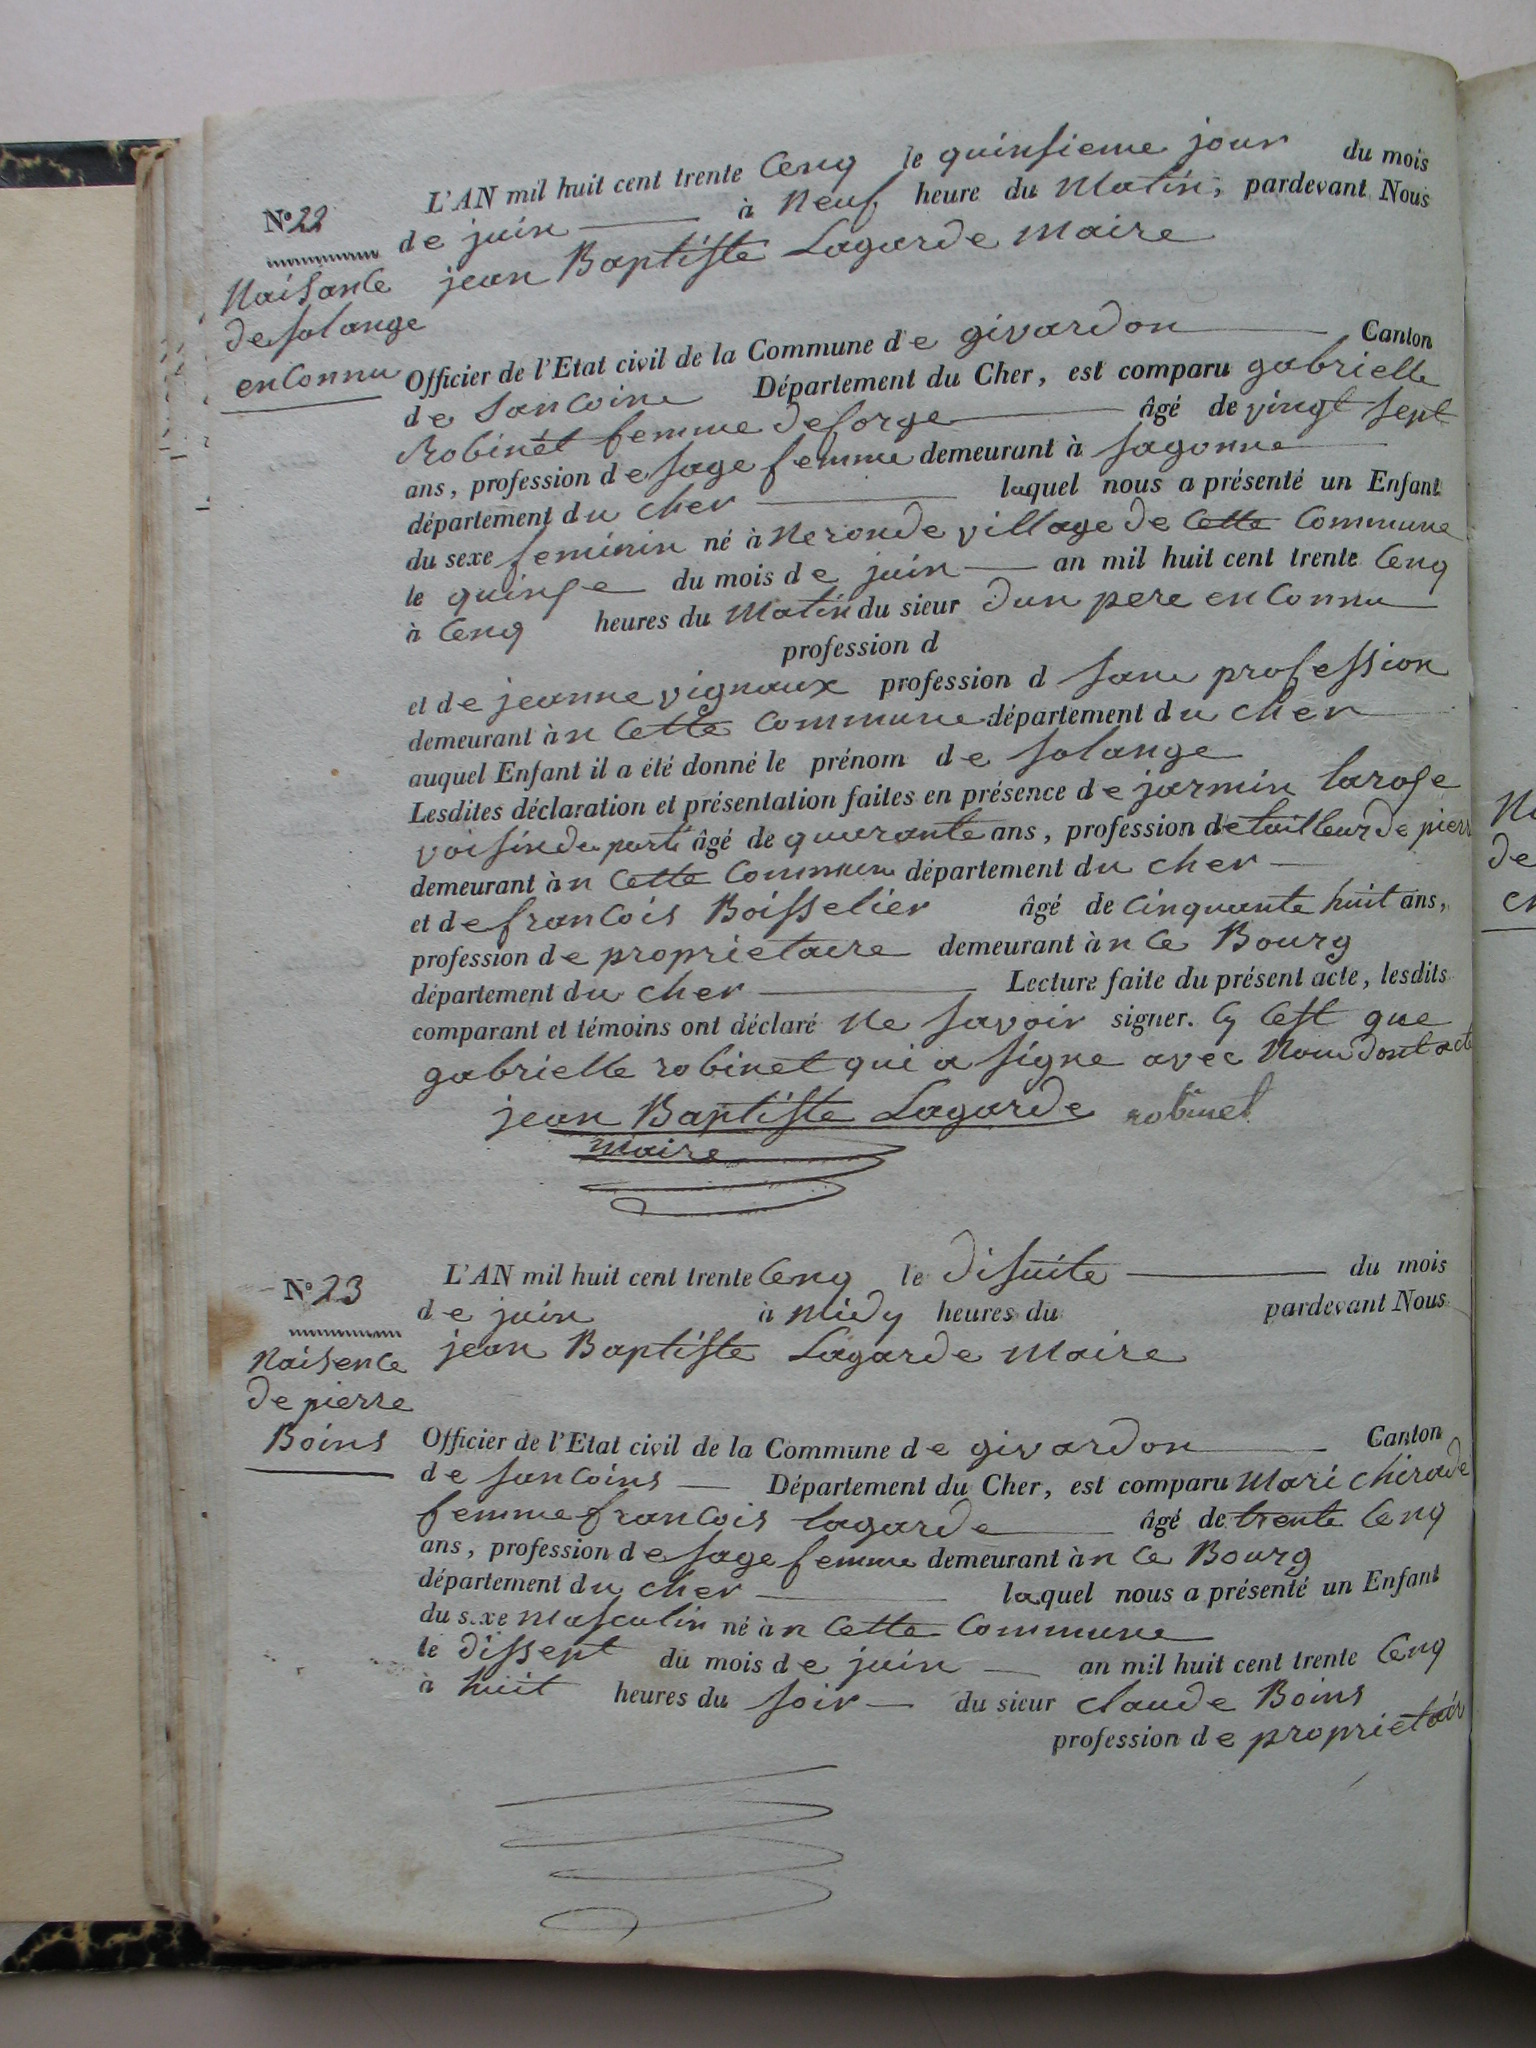 N.º 22
Naisance
de solange
enconnu
L'AN mil huit cent trente cenq le quinsieme jour du mois
de juin à neuf heure du matin, pardevant Nous
jean Baptiste Lagarde maire
Officier de l'Etat civil de la Commune de givardon Canton
de Sancoine Département du Cher, est comparu gabrielle
Robinet femme deforge âgé de vingt sept
ans, profession de sage femme demeurant à sagonne
département du cher laquel nous a présenté un Enfant
du sexe feminin né à neronde village de cette commune
le quinse du mois de juin an mil huit cent trente cenq
à cenq heures du matin du sieur dun pere enconnu
profession d
et de jeanne vignaux profession d sane profession
demeurant àn cette commune département du cher
auquel Enfant il a été donné le prénom de solange
Lesdites déclaration et présentation faites en présence de jarmin larose
voisin du parti âgé de quarante ans, profession de tailleur de pierr
demeurant àn cette commune département du cher
et de francois Boisselier âgé de cinquante huit ans,
profession de proprietaere demeurant àn ce Bourg
département du cher Lecture faite du présent acte, lesdits
comparant et témoins ont déclaré ne savoir signer. cy cest que
gabrielle robinet qui a signe avec nous dont acte
jean Baptiste Lagarde robinet
maire
N.º 23
Naisence
de pierre
Boins
L'AN mil huit cent trente cenq le disuite du mois
de juin à midy heures du pardevant Nous
jean Baptiste Lagarde maire
Officier de l'Etat civil de la Commune de givardon Canton
de sancoins Département du Cher, est comparu mari chirade
femme francois lagarde âgé de trente cenq
ans, profession de sage femme demeurant àn ce Bourg
département du cher laquel nous a présenté un Enfant
du sexe masculin né àn cette commune
le dissept du mois de juin an mil huit cent trente cenq
à huit heures du soir du sieur claude Boins
profession de proprietair